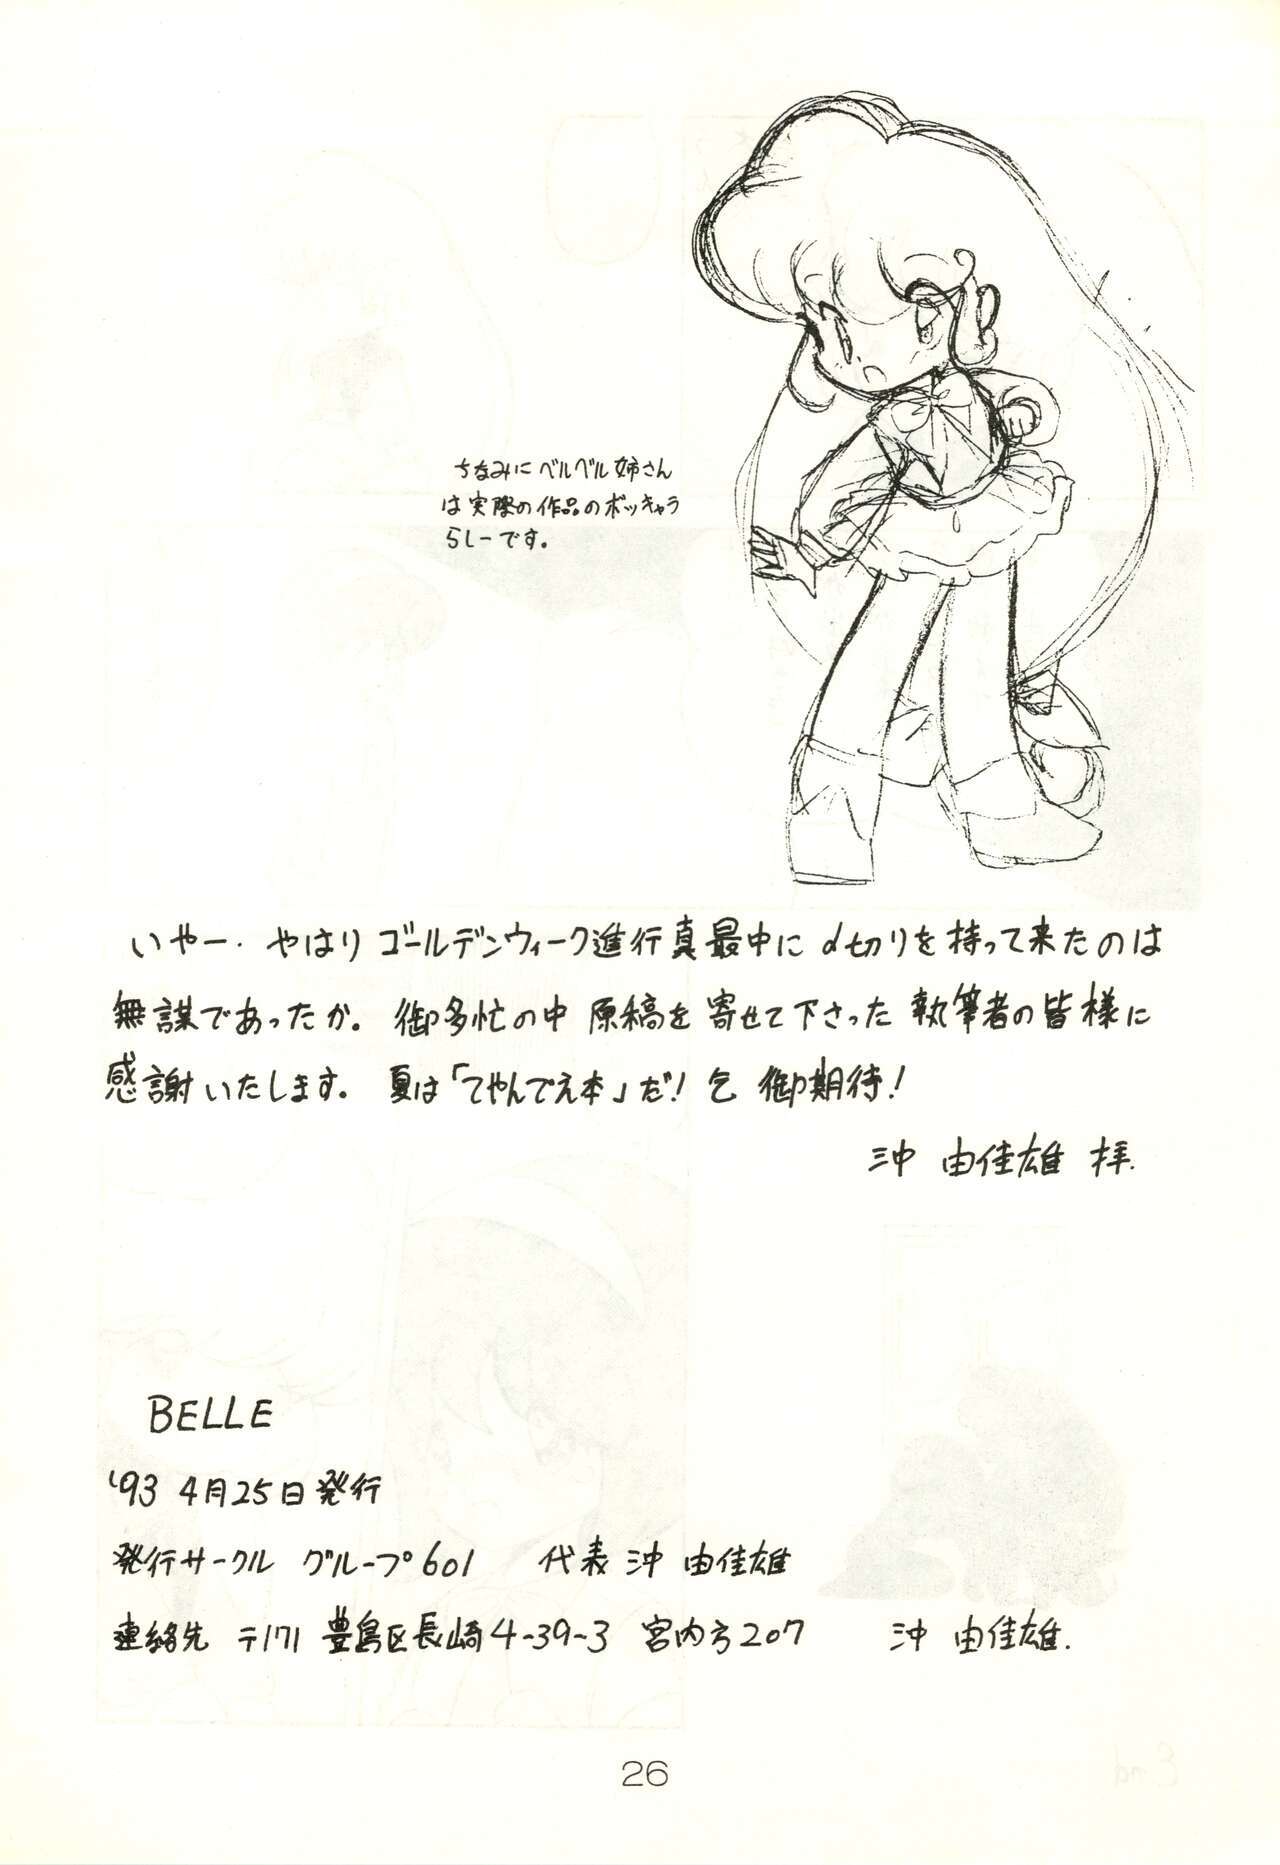 ちなみにベルベル姉さん
は実際の作品のボッキャラ
らしーです。
いやー. やはりゴールデンウィーク進行真最中に〆切りを持って来たのは
無謀であったか。 御多忙の中 原稿を寄せて下さった執筆者の皆様に
感謝いたします。 夏は「てやんでえ本」だ! 乞 御期待!
沖 由佳雄 拝.
BELLE
'93 4月25日発行
発行サークル グループ601 代表 沖 由佳雄
連絡先 〒171 豊島区長崎4-39-3 宮内方207 沖 由佳雄.
26
End